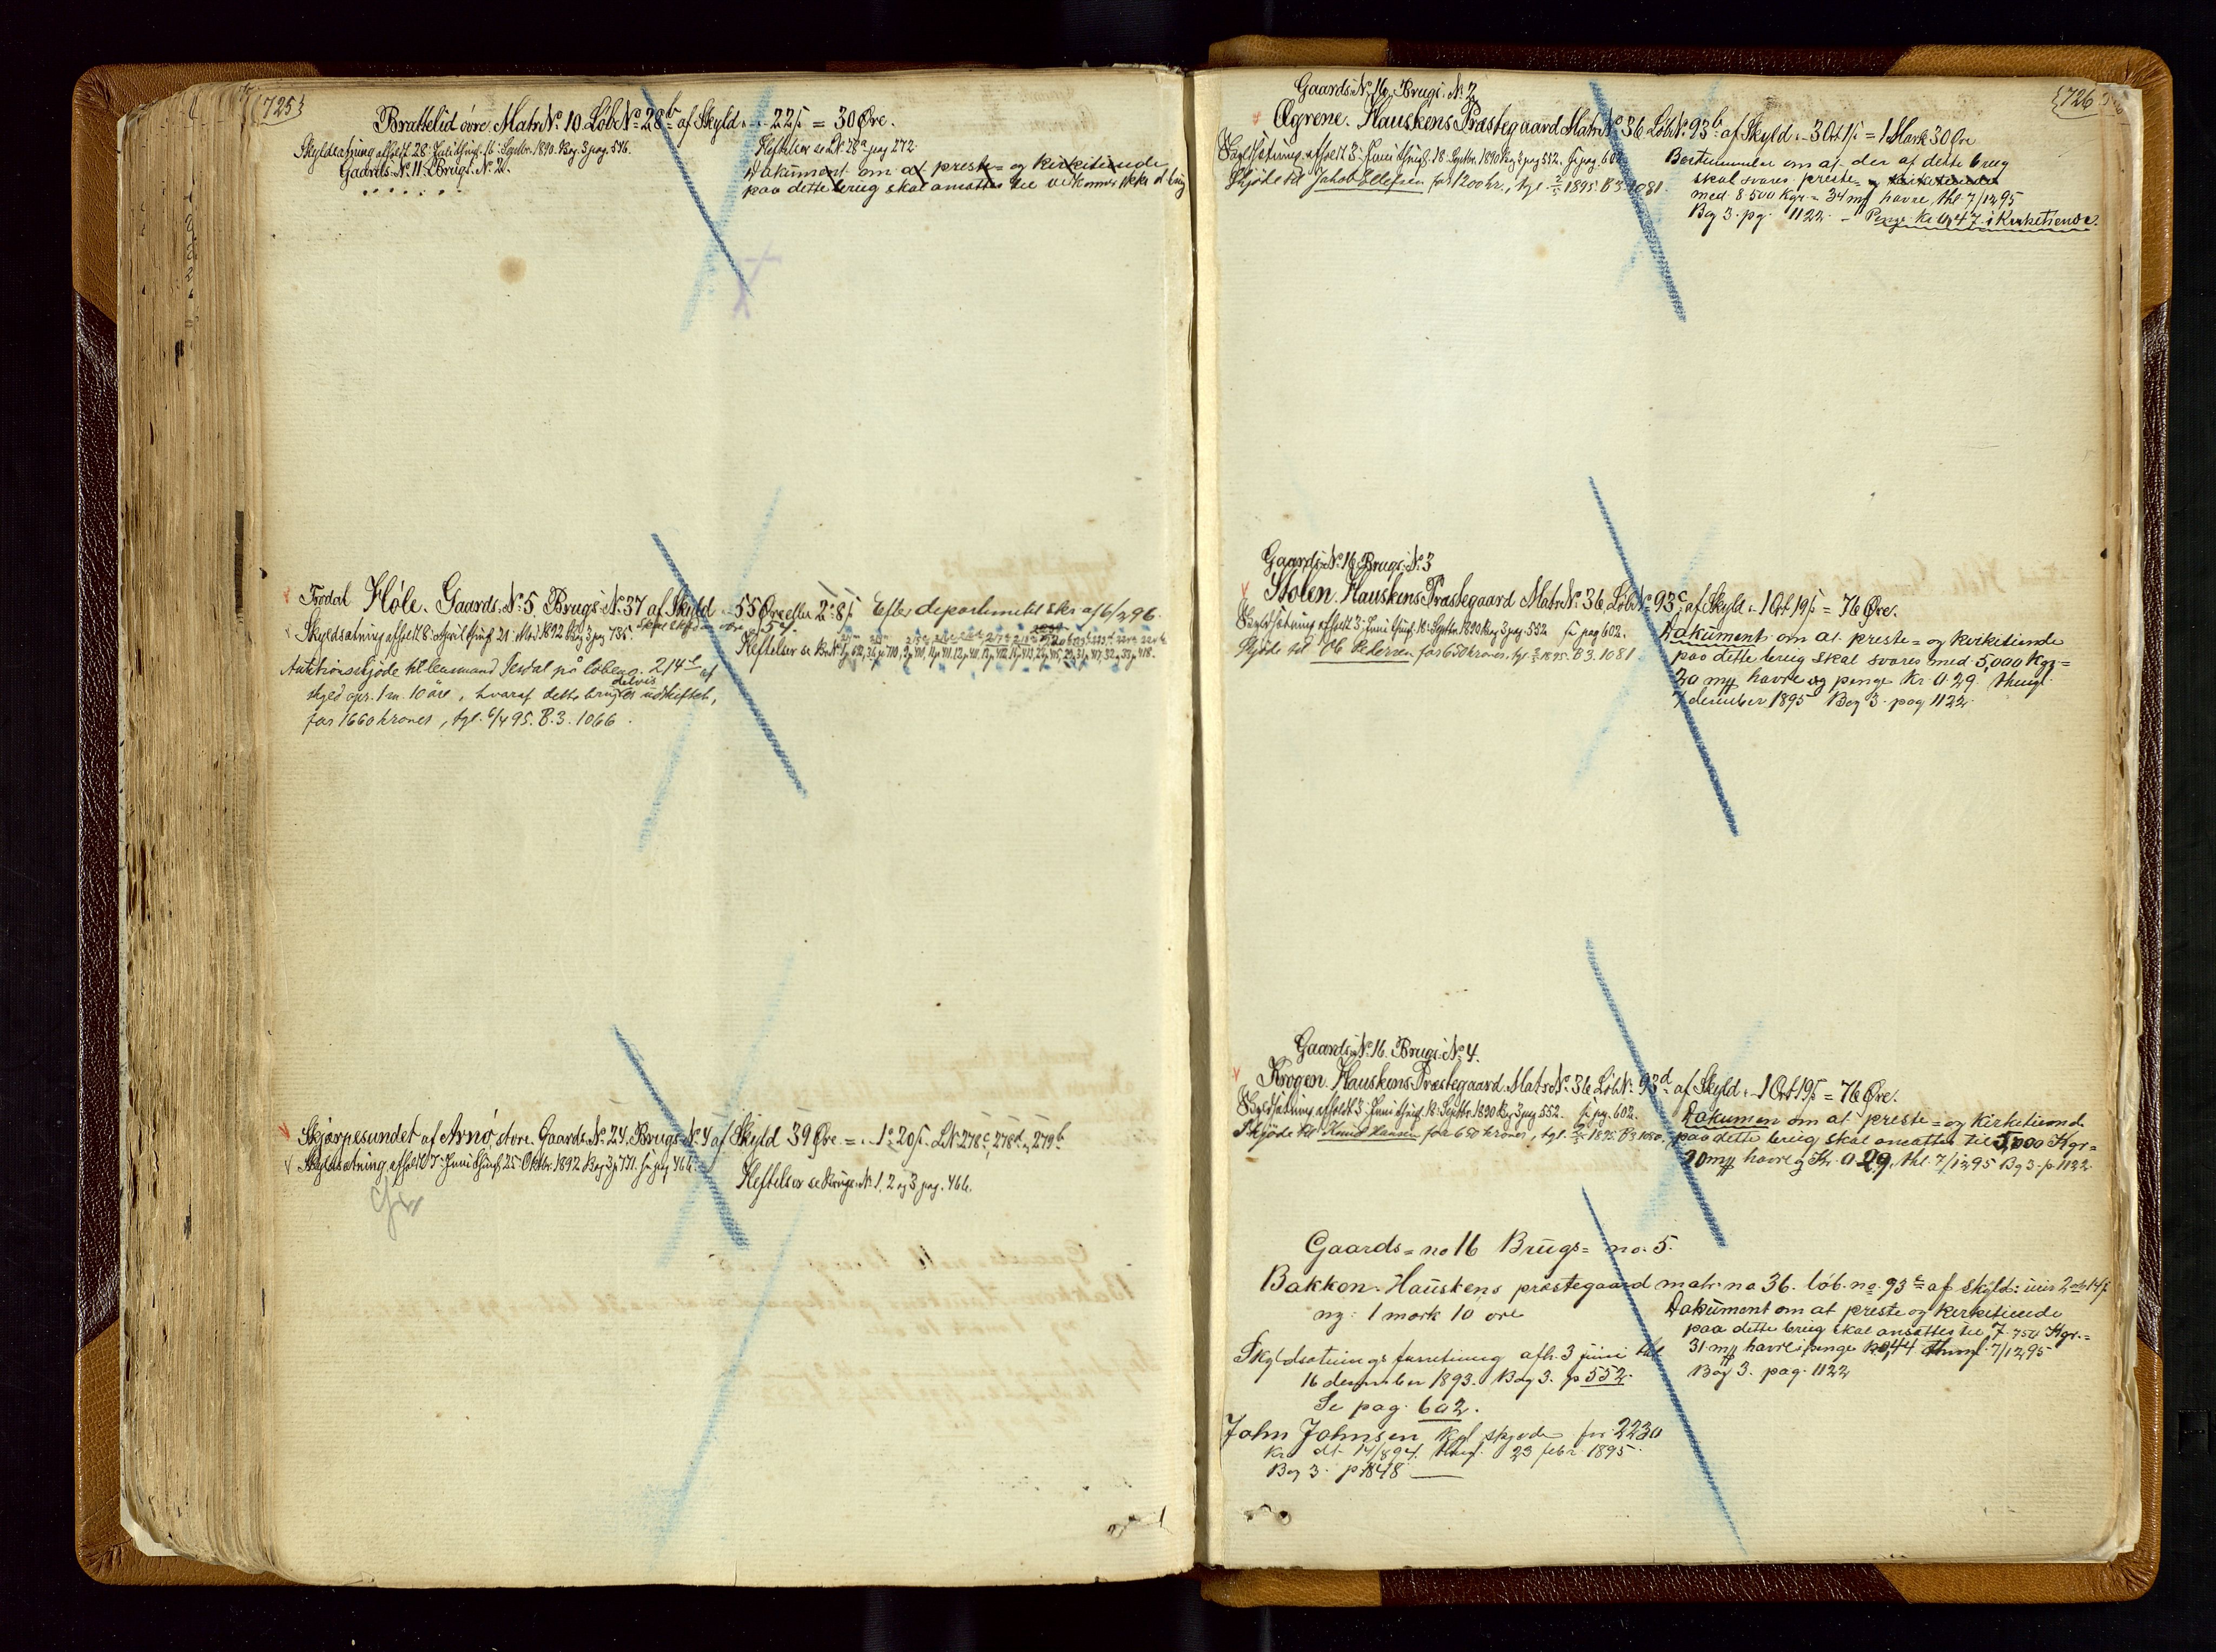 725
Brattelid övre. Matr. No. 10. Løb. No. 28b af Skyld - - - 22 s = 30 Øre.
Skyldsætning afholdt 28. Juli thingl. 16. Septbr. 1890. Bog 3 pag. 546.
Gaards. No. 11. Brugs. No. 2.
Heftelser se L.N. 28a pag 272.
Dokument om at preste- og kirketiende
paa dette brug skal ansættes til
Trodal Høle. Gaards. No. 5. Brugs. No. 37 af Skyld - 55 Øre eller 2 - 8 s Efter departementets skr. af 6/2 96.
Skyldsætning afholdt 8. April thingl. 21. Mai 1892 Bog 3 pag 735.
Heftelser se Br. No.
Auktionsskjøde til lensmand Tesdal på løbeno. 214d af
skyld opr. 1 m. 10 øre, hvoraf dette brug delvis er udskiftet,
for 1660 kroner, tgl. 6/4 95. B. 3. 1066.
Skjærpesundet af Arnø, store. Gaards. No. 24. Brugs. No. 4 af Skyld 39 Øre. = - 1 - 20 s. L.N. 278c, 278d, 279b
Skyldsætning afholdt 7. Juni thingl. 25. Oktbr. 1892 Bog 3 p 771. se pag 466.
Heftelser se Brugs. No. 1, 2 og 3 pag. 466.
726
Gaards. No. 16. Brugs. No. 2
Øgrene. Hauskens Præstegaard Matr. No. 36 Løb. No. 93b af Skyld - 3 Ort 1 s = 1 Mark 30 Øre
Skyldsætning afholdt 3. Juni thingl. 18. Septbr. 1890 Bog 3 pag 552. se pag. 602.
Skjøde til Jakob Ellefsen for 1200 kr., tgl. 2/5 1895. B. 3. 1081.
Bestemmelse om at der af dette brug
skal svares preste- og kirketiende
med 8.500 Kgr. = 34 mrk havre, thl. 7/12 95
Bog 3. pg. 1122 - Penge Kr 0,47 i Kirketiende.
Gaards. No. 16. Brugs. No. 3
Stolen. Hauskens Præstegaard Matr. No. 36. Løb. No. 93c af Skyld - 1 Ort 19 s = 76 Øre.
Skyldsætning afholdt 3. Juni thingl. 18. Septbr. 1890 Bog 3 pag. 552. se pag 602.
Skjøde til Ole Pedersen for 650 kroner, tgl. 2/5 1895. B. 3. 1081
Dokument om at preste- og kirketiende
paa dette brug skal svares med 5,000 Kgr =
20 mrk havre og penge Kr. 0.29. thingl.
7 december 1895 Bog 3. pag 1122.
Gaards. No. 16. Brugs. No. 4.
Krogen. Hauskens Præstegaard. Matr. No. 36 Løb. No. 93d af Skyld - 1 Ort 19 s = 76 Øre.
Skyldsætning afholdt 3. Juni thingl. 18. Septbr. 1890 Bog 3 pag 552. se pag. 602.
Skjøde til Knud Hansen for 650 kroner, tgl. 2/5 1895. B. 3. 1080.
Dokument om at preste- og Kirketiende
paa dette brug skal ansættes til 5,000 Kgr =
20 mrk havre og Kr. 0.29, thl. 7/12 95 Bg 3. p 1122
Gaards- no 16 Brugs- no. 5.
Bakken. Hauskens præstegaard matr. no 36. løb. no. 93e af skyld: 2 ort 14 s
ny: 1 mark 10 øre
Dokument om at preste og kirketiende
paa dette brug skal ansættes til 7.750 Kgr. =
31 mrk havre i penge kr 0,44 thingl. 7/12 95
Bog 3. pag. 1122
Skyldsætnings forretning afh. 3 juni thl
16 december 1893. Bog 3. p 552.
Se pag. 602.
John Johnsen kgl skjøde for 2230
Kr dt. 14/8 94. thingl. 23 febr. 1895.
Bog 3. p 1048